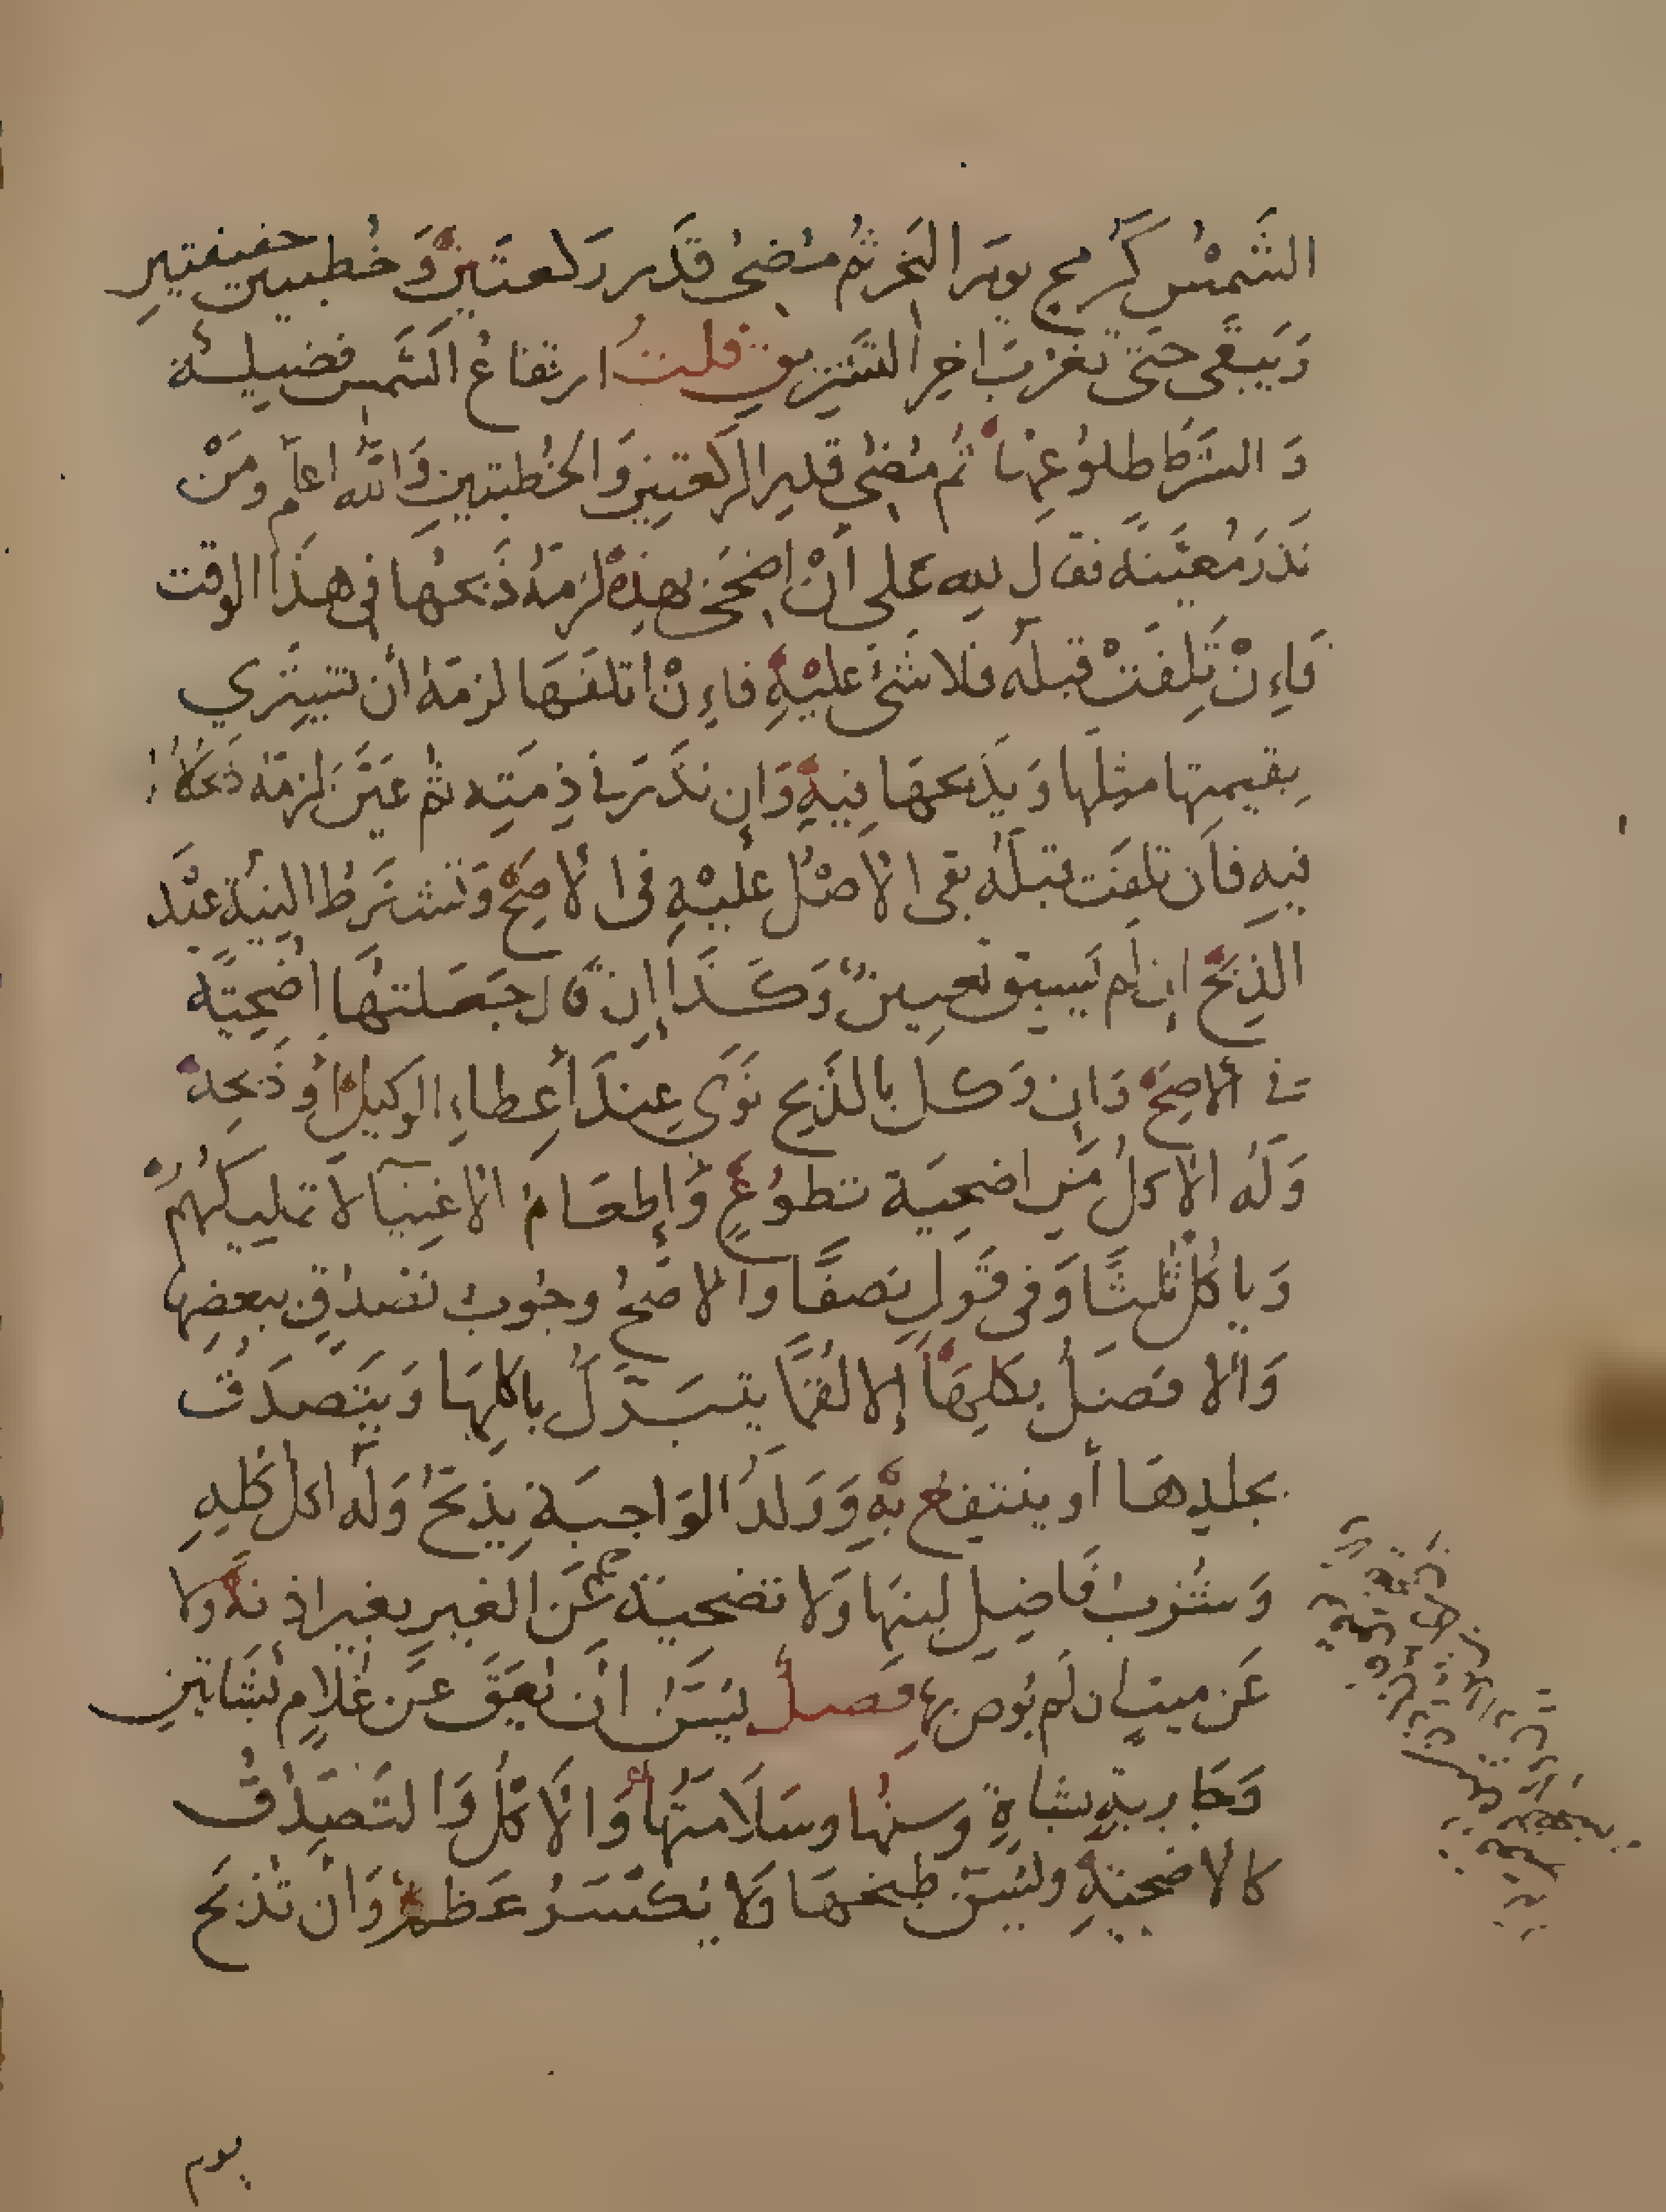 الشَّمْسُ كَرُمْحٍ يومَ النحر ثم مُضِيُّ قَدْرِ ركعتَيْنِ وَخُطْبتين خفيفتينِ
وَيَبقى حتى تغرُبَ اخِرَ التشريق قلتُ ارتفاعُ الشَّمس فضيلة
وَ الشرط طلوعها ثُم مُضِيُّ قدرِ الركعتينِ وَالخُطبتينِ وَاللّٰه اعلم ومَنْ
نَذَرَ مُعيَّنة فقال لله عَلى أنْ اضحّى بهذِهْ لَزِمَهُ ذَبحُها فى هذَا الوقت
فَاءِنْ تَلِفَتْ قبله فَلا شَىْءَ عليْهِ فاءِنْ اتلفَهَا لزمَهُ أن يشترِي
بِقيمتِها مثلَها وَيذبحهَا فيهِ وَاِن نذَرَ فى ذِمّتِه ثم عيَّنَ لزمَهُ ذبحُهُ
فيهِ فاَن تلِفَت قبلَهُ بقى الاصْلُ عَليْهِ فى الاصَحِّ وَتشترَطُ النيةُ عنْد
الذبْح إن لَم يَسبق تعيينٌ وَكَذَا إن قال جَعَلتُهَا اُضْحِيَّة
فى الاصَحِّ وَإن وَكل بالذَّبح نَوَى عِندَ اعِطاءِ الوَكيلِ اَوْ ذَبحِه
وَلَهُ الاكلُ مِن اضحيَة تطوّعٍ وَإطعَامُ الاغنيَا لا تمليكُهُمْ
وَياكُل ثُلثًا وَفى قَولٍ نصفًا والاصَحُّ وجُوب تصَدُّقٍ ببعضِها
وَالافضَلُ بكلِهَا إلا لُقَمًا يتبَرَّكُ باكلِهَا وَيتَصَدقُ
بجلدِهَا أو ينتفِعُ به وَوَلَدُ الوَاجبَةِ يذبَحُ وَلَهُ اكلُ كلِهِ
وَشُرْبُ فَاضِلِ لبنِهَا وَلا تضحيَة عَنِ الغَيرِ بغير اذنه ولا
عَن ميتٍ ان لَم يُوص بها فصلٌ يُسَنُّ أن يُعَقَّ عَن غُلامٍ بشاتَينِ
وَجَاريةٍ بشاةٍ وسنُها وسَلامَتُهَا وَالاكْلُ وَالتَصَدُّقُ
كالاضحيّةِ ويُسَنُّ طبخهَا وَلا يُكسَرُ عَظم وَأن تُذْبَحَ
يوم